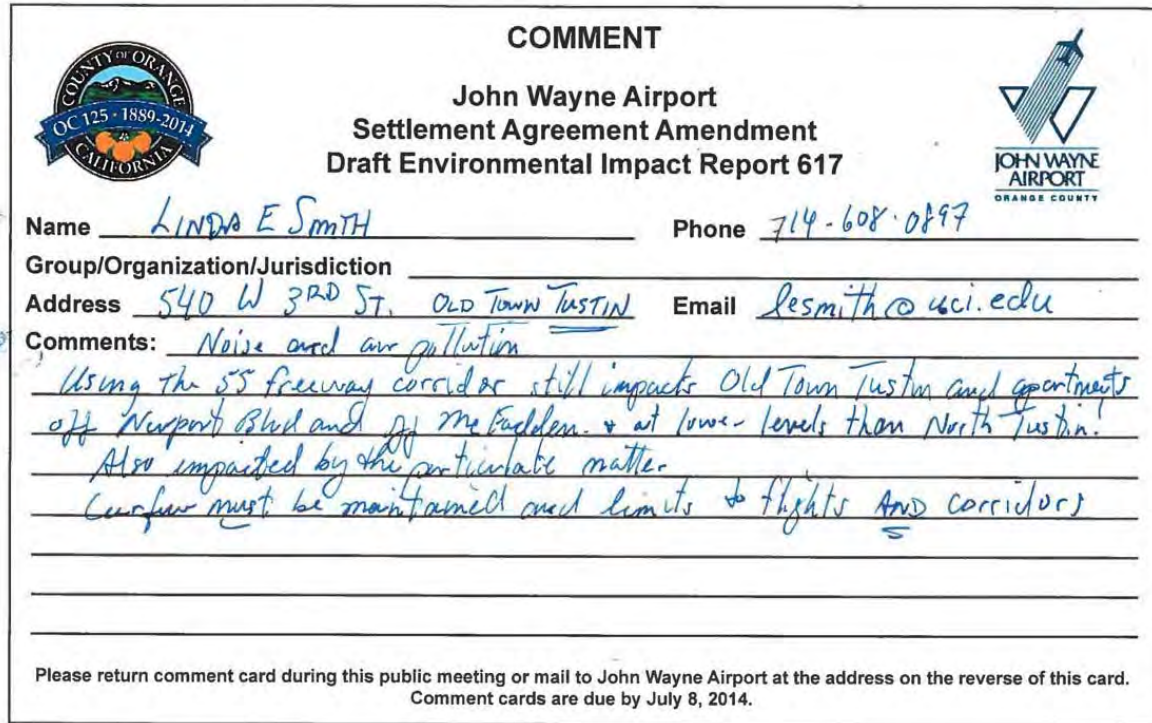 COMMENT
COUNTY OF ORANGE
OC 125 · 1889-2014
CALIFORNIA
John Wayne Airport
Settlement Agreement Amendment
Draft Environmental Impact Report 617
JOHN WAYNE
AIRPORT
ORANGE COUNTY
Name LINDA E SMITH Phone 714-608-0897
Group/Organization/Jurisdiction
Address 540 W 3RD ST. OLD TOWN TUSTIN Email lesmith@uci.edu
Comments: Noise and air pollution
Using the 55 freeway corridor still impacts Old Town Tustin and apartments
off Newport Blvd and off McFadden. & at lower levels than North Tustin!
Also impacted by the particulate matter
Curfew must be maintained and limits to flights AND corridors
Please return comment card during this public meeting or mail to John Wayne Airport at the address on the reverse of this card.
Comment cards are due by July 8, 2014.